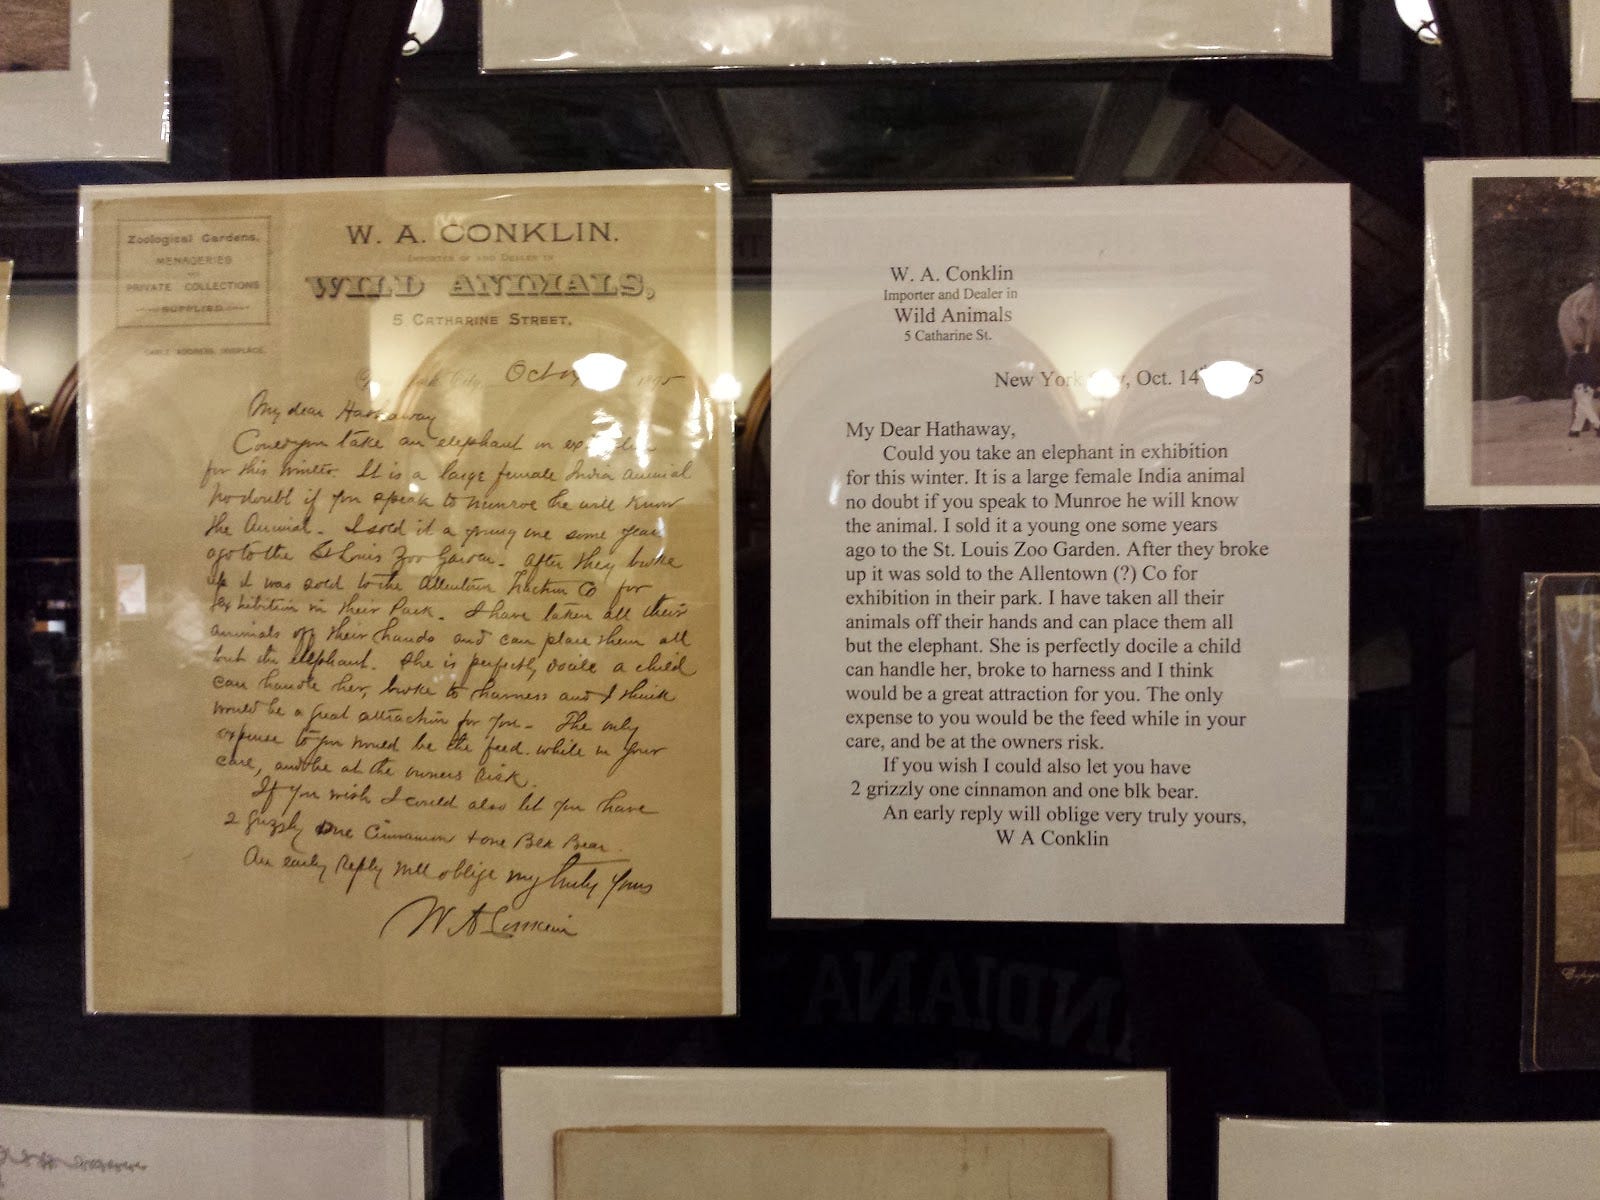 Zoological Gardens,
MENAGERIES
AND
PRIVATE COLLECTIONS
SUPPLIED
W. A. CONKLIN.
IMPORTER OF AND DEALER IN
WILD ANIMALS,
5 CATHARINE STREET,
CABLE ADDRESS,
City, Oct
My dear Hathaway
take an elephant in
for this winter. It is a large female India animal
no doubt if you speak to Munroe he will know
the Animal. I sold it a young one some years
ago to the St Louis Zoo Garden. After they broke
up it was sold to the Allentown Traction Co for
exhibition in their Park. I have taken all their
animals off their hands and can place them all
but the elephant. She is perfectly docile a child
can handle her, broke to harness and I think
would be a great attraction for you. The only
expense to you would be the feed. while in your
care, and be at the owners risk.
If you wish I could also let you have
2 grizzly one Cinnamon + one Blk Bear.
An early reply will oblige Yours
W A Conklin
W. A. Conklin
Importer and Dealer in
Wild Animals
5 Catharine St.
New York Oct. 14
My Dear Hathaway,
Could you take an elephant in exhibition
for this winter. It is a large female India animal
no doubt if you speak to Munroe he will know
the animal. I sold it a young one some years
ago to the St. Louis Zoo Garden. After they broke
up it was sold to the Allentown (?) Co for
exhibition in their park. I have taken all their
animals off their hands and can place them all
but the elephant. She is perfectly docile a child
can handle her, broke to harness and I think
would be a great attraction for you. The only
expense to you would be the feed while in your
care, and be at the owners risk.
If you wish I could also let you have
2 grizzly one cinnamon and one blk bear.
An early reply will oblige very truly yours,
W A Conklin
INDIANA